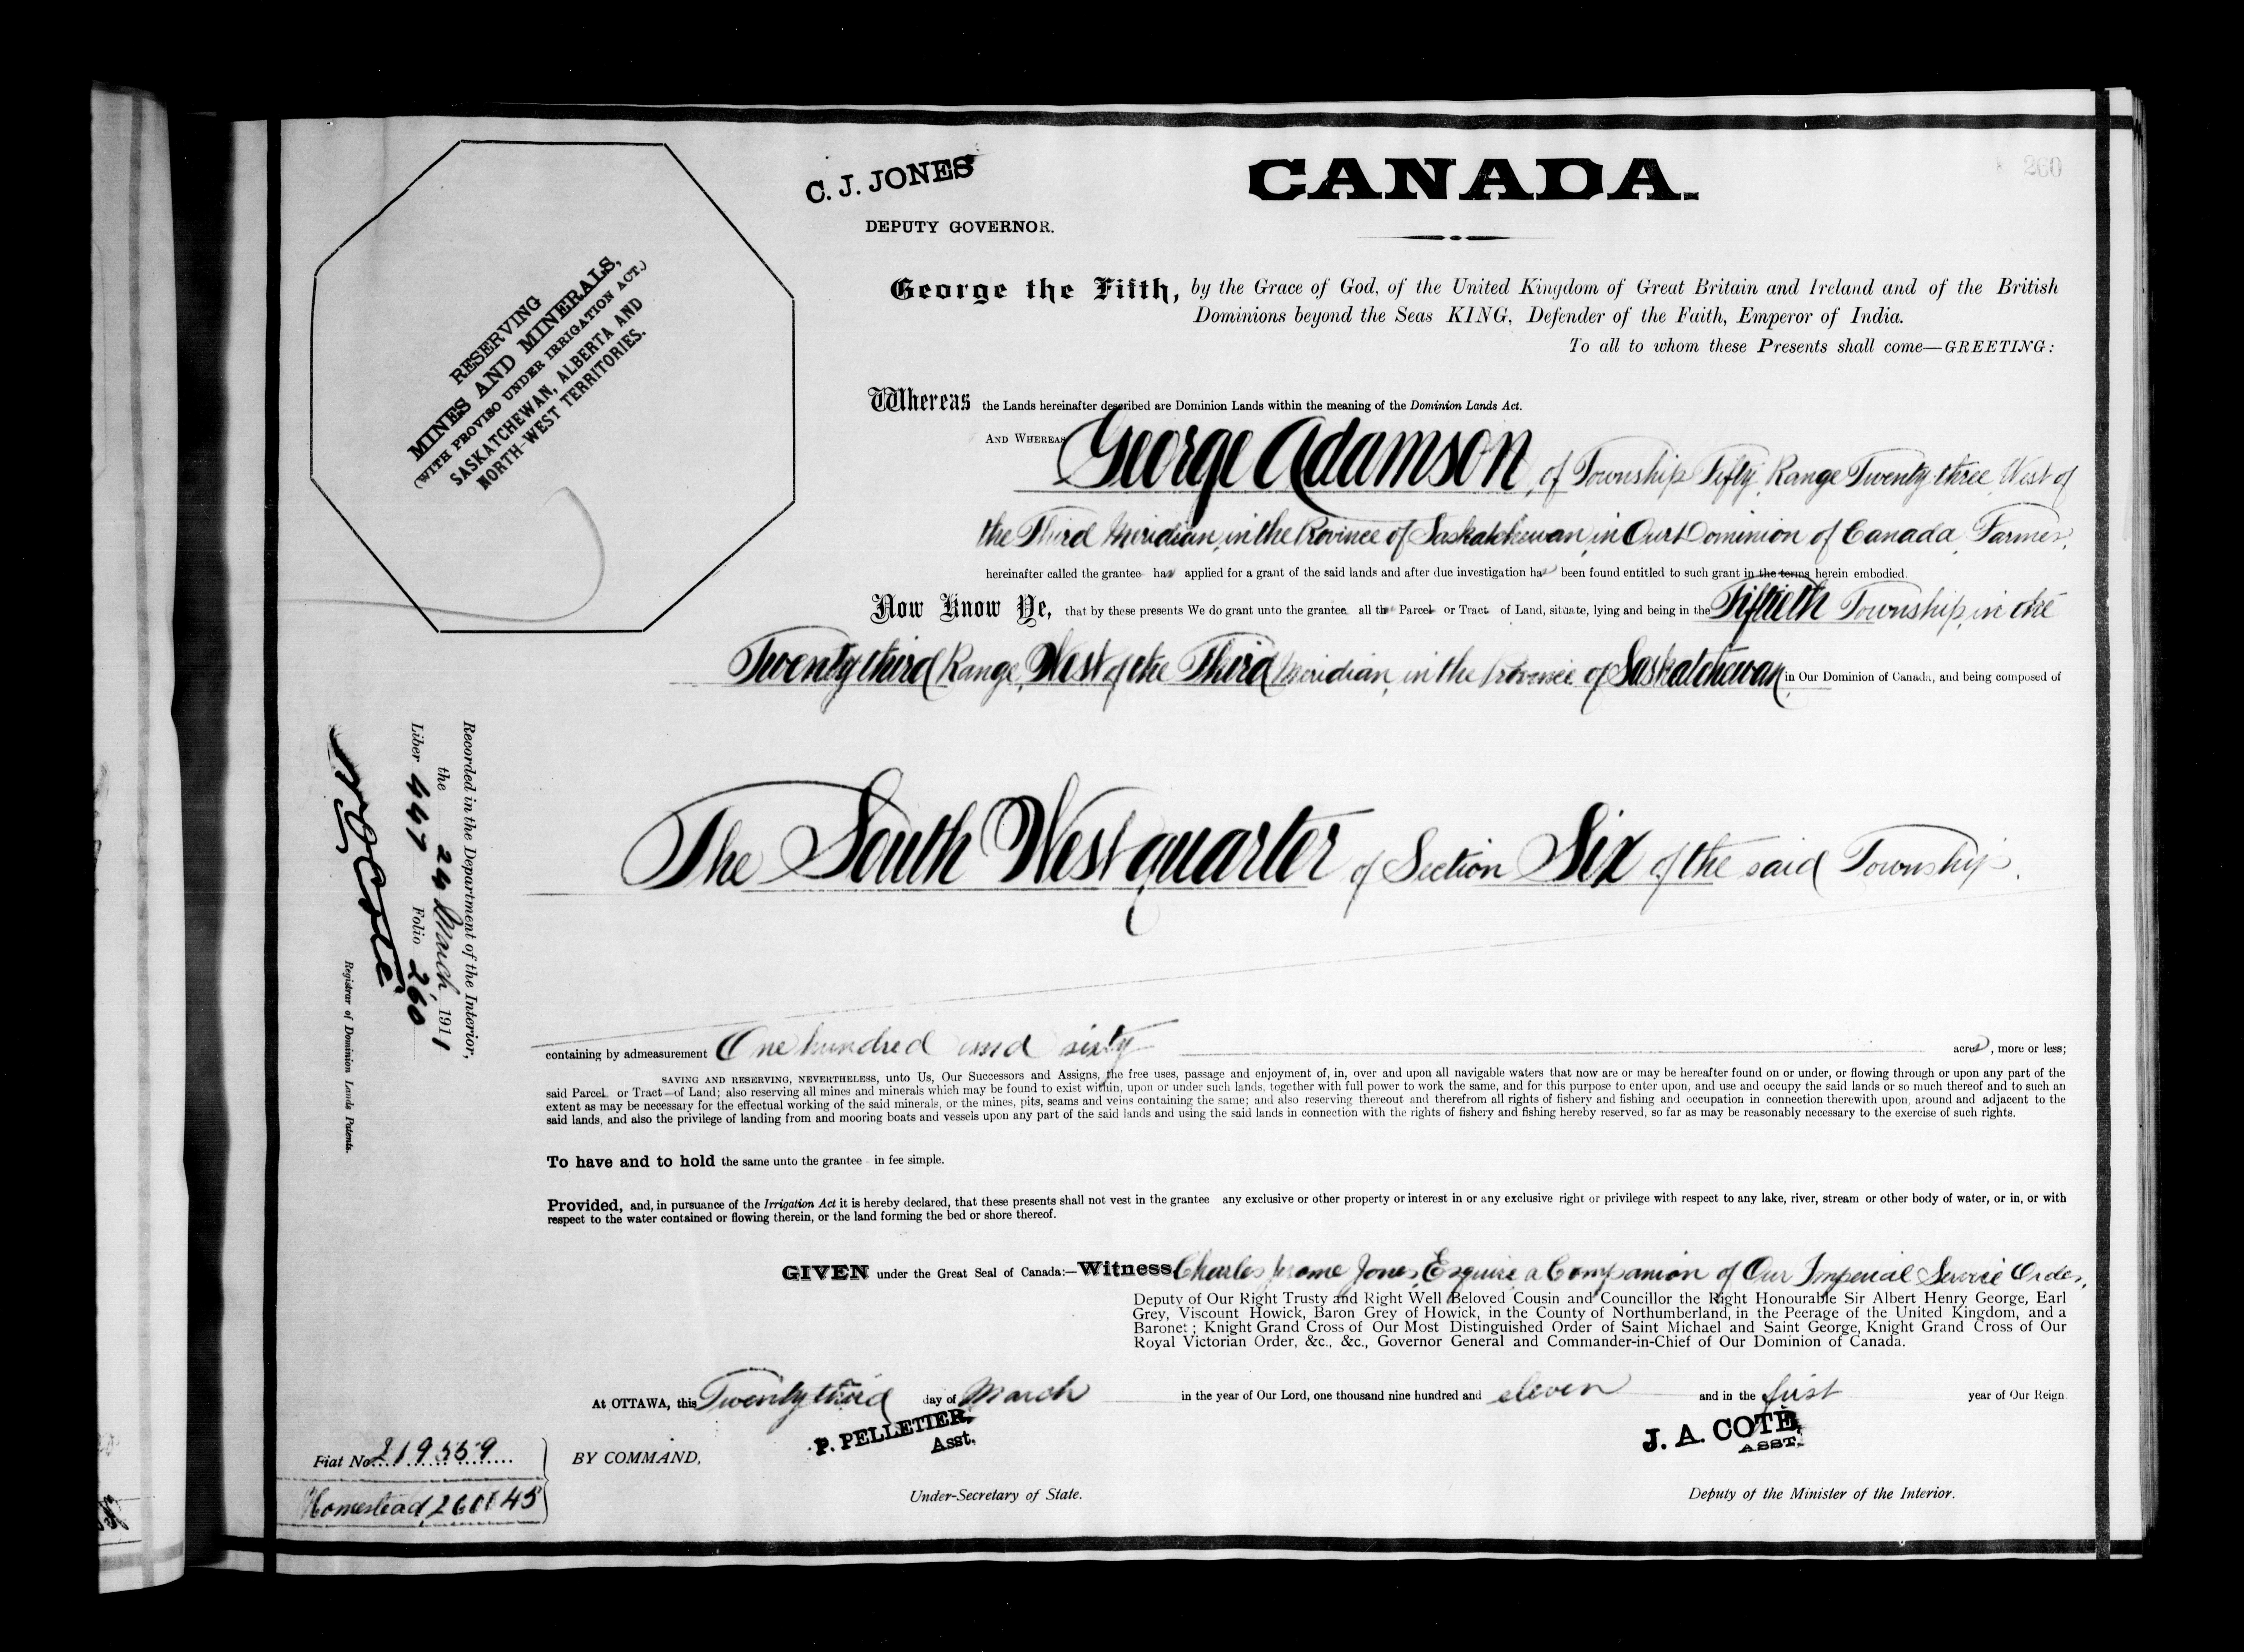 260
C. J. JONES
DEPUTY GOVERNOR.
CANADA.
RESERVING
MINES AND MINERALS,
(WITH PROVISO UNDER IRRIGATION ACT.)
SASKATCHEWAN, ALBERTA AND
NORTH-WEST TERRITORIES.
George the Fifth, by the Grace of God, of the United Kingdom of Great Britain and Ireland and of the British
Dominions beyond the Seas KING, Defender of the Faith, Emperor of India.
To all to whom these Presents shall come—GREETING:
Whereas the Lands hereinafter described are Dominion Lands within the meaning of the Dominion Lands Act.
AND WHEREAS George Adamson, of Township Fifty, Range Twenty three, West of
the Third Meridian, in the Province of Saskatchewan, in Our Dominion of Canada, Farmer,
hereinafter called the grantee has applied for a grant of the said lands and after due investigation has been found entitled to such grant in the terms herein embodied.
Now Know Ye, that by these presents We do grant unto the grantee all that Parcel or Tract of Land, situate, lying and being in the Fiftieth Township, in the
Twenty third Range, West of the Third Meridian, in the Province of Saskatchewan in Our Dominion of Canada, and being composed of
The South West quarter of Section Six of the said Township.
Recorded in the Department of the Interior,
the 24 March 1911
Liber 447 Folio 260
Registrar of Dominion Lands Patents.
containing by admeasurement One hundred and sixty acres, more or less;
SAVING AND RESERVING, NEVERTHELESS, unto Us, Our Successors and Assigns, the free uses, passage and enjoyment of, in, over and upon all navigable waters that now are or may be hereafter found on or under, or flowing through or upon any part of the
said Parcel or Tract of Land; also reserving all mines and minerals which may be found to exist within, upon or under such lands, together with full power to work the same, and for this purpose to enter upon, and use and occupy the said lands or so much thereof and to such an
extent as may be necessary for the effectual working of the said minerals, or the mines, pits, seams and veins containing the same; and also reserving thereout and therefrom all rights of fishery and fishing and occupation in connection therewith upon, around and adjacent to the
said lands, and also the privilege of landing from and mooring boats and vessels upon any part of the said lands and using the said lands in connection with the rights of fishery and fishing hereby reserved, so far as may be reasonably necessary to the exercise of such rights.
To have and to hold the same unto the grantee in fee simple.
Provided, and, in pursuance of the Irrigation Act it is hereby declared, that these presents shall not vest in the grantee any exclusive or other property or interest in or any exclusive right or privilege with respect to any lake, river, stream or other body of water, or in, or with
respect to the water contained or flowing therein, or the land forming the bed or shore thereof.
GIVEN under the Great Seal of Canada:—Witness Charles Jerome Jones, Esquire, a Companion of Our Imperial Service Order,
Deputy of Our Right Trusty and Right Well Beloved Cousin and Councillor the Right Honourable Sir Albert Henry George, Earl
Grey, Viscount Howick, Baron Grey of Howick, in the County of Northumberland, in the Peerage of the United Kingdom, and a
Baronet; Knight Grand Cross of Our Most Distinguished Order of Saint Michael and Saint George, Knight Grand Cross of Our
Royal Victorian Order, &c., &c., Governor General and Commander-in-Chief of Our Dominion of Canada.
At OTTAWA, this Twenty third day of March in the year of Our Lord, one thousand nine hundred and eleven and in the first year of Our Reign
P. PELLETIER,
Asst.
J. A. COTÉ
ASST.
Fiat No. 219559
BY COMMAND,
Homestead,
Under-Secretary of State.
Deputy of the Minister of the Interior.